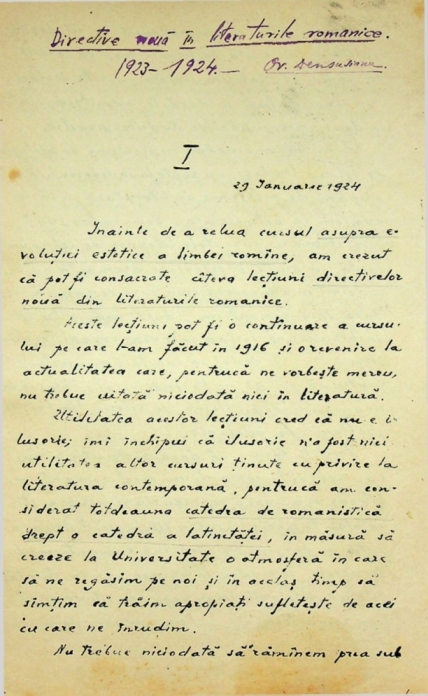 Directive nouă în literaturile romanice.
1923-1924.— Ov. Densusianu.
I
29 Ianuarie 1924
Inainte de a relua cursul asupra e-
voluției estetice a limbei romîne, am crezut
că pot fi consacrate cîteva lecțiuni directivelor
nouă din literaturile romanice.
Aceste lecțiuni pot fi o continuare a cursu-
lui pe care l-am făcut în 1916 și o revenire la
actualitatea care, pentrucă ne vorbește mereu,
nu trebue uitată niciodată nici în literatură.
Utilitatea acestor lecțiuni cred că nu e i-
lusorie; îmi închipui că ilusorie n'a fost nici
utilitatea altor cursuri ținute cu privire la
literatura contemporană, pentrucă am con-
siderat totdeauna catedra de romanistică
drept o catedră a latinităței, în măsură să
creeze la Universitate o atmosferă în care
să ne regăsim pe noi și în acelaș timp să
simțim că trăim apropiați sufletește de acei
cu care ne înrudim.
Nu trebue niciodată să rămînem prea sub